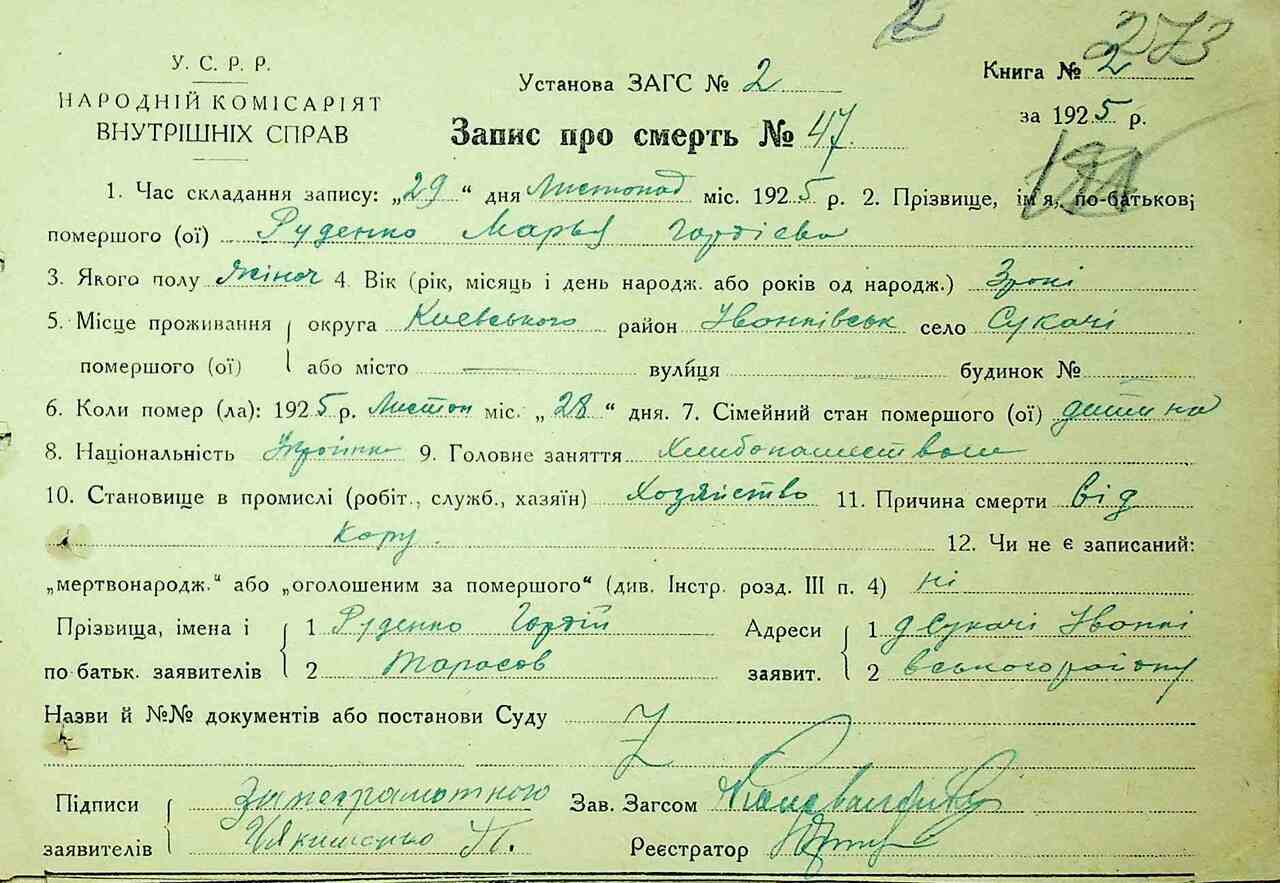 2
273
У. С. Р. Р.
НАРОДНІЙ КОМІСАРІЯТ
ВНУТРІШНІХ СПРАВ
Установа ЗАГС № 2
Книга № 2
за 1925 р.
Запис про смерть № 47.
1. Час складання запису: „29“ дня Листопад міс. 1925 р. 2. Прізвище, ім'я, по-батькові
помершого (ої) Руденко Марья Гордієва
3. Якого полу жіноч 4. Вік (рік, місяць і день народж. або років од народж.) 3 роки
5. Місце проживання округа Киевського район Іванківськ село Сукачі
помершого (ої) або місто вулиця будинок №
6. Коли помер (ла): 1925 р. Листоп міс. „28“ дня. 7. Сімейний стан помершого (ої) дитина
8. Національність 9. Головне заняття
10. Становище в промислі (робіт., служб., хазяїн) Хозяйство 11. Причина смерти від
кору. 12. Чи не є записаний:
„мертвонародж.“ або „оголошеним за помершого“ (див. Інстр. розд. III п. 4) ні
Прізвища, імена і 1 Руденко Гордій Адреси 1 д Сукачі Іванкі
по батьк. заявителів 2 Тарасов заявит. 2 вського району
Назви й №№ документів або постанови Суду
Підписи За неграмотного Зав. Загсом
заявителів П. Реєстратор